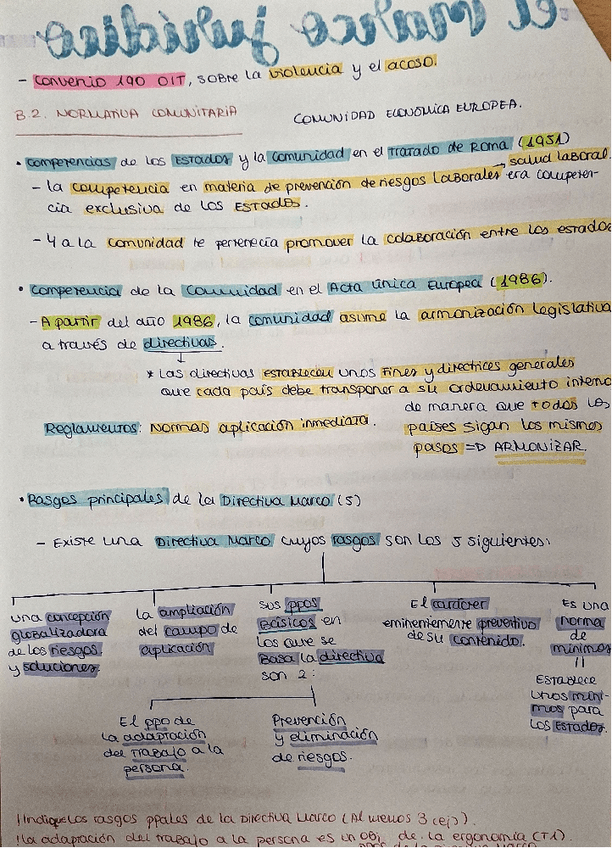 el marco jurídico
- Convenio 190 OIT, sobre la violencia y el acoso.
B.2. NORMATIVA COMUNITARIA
COMUNIDAD ECONÓMICA EUROPEA.
• Competencias de los Estados y la Comunidad en el Tratado de Roma (1951)
→ salud laboral.
- la competencia en materia de prevención de riesgos laborales era competen-
cia exclusiva de los ESTADOS.
- Y a la comunidad le pertenecía promover la colaboración entre los estados
• Competencia de la Comunidad en el Acta única Europea (1986).
- A partir del año 1986, la comunidad asume la armonización legislativa
a través de directivas.
* Las directivas establecen unos fines y directrices generales
que cada país debe transponer a su ordenamiento interno
de manera que todos los
Reglamentos: Normas aplicación inmediata.
países sigan los mismos
pasos =D ARMONIZAR
• Rasgos principales de la Directiva Marco (5)
- Existe una Directiva Marco cuyos rasgos son los 5 siguientes:
una concepción
globalizadora
de los riesgos
y soluciones.
la ampliación
del campo de
aplicación
sus ppos
básicos en
los que se
basa la directiva
son 2:
El carácter
eminentemente preventivo
de su contenido.
Es una
norma
de
mínimos
||
Establece
unos míni-
mos para
los Estados.
El ppo de
la adaptación
del trabajo a la
persona.
Prevención
y eliminación
de riesgos.
! Indique los rasgos ppales de la Directiva Marco (Al menos 3 (ej)).
! la adaptación del trabajo a la persona es un obj. de la ergonomía (T1).